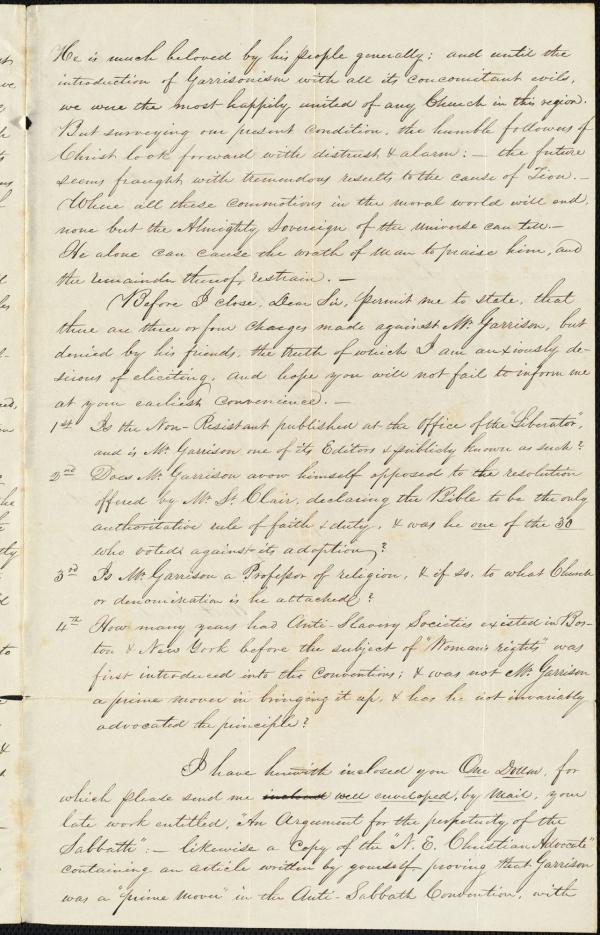 He is much beloved by his people generally; and until the
introduction of Garrisonism with all its concomitant evils,
we were the most happily united of any Church in this region.
But surveying our present condition, the humble followers of
Christ look forward with distrust & alarm: — the future
seems fraught with tremendous results to the cause of Zion. —
Where all these commotions in the moral world will end,
none but the Almighty Sovereign of the Universe can tell. —
He alone can cause the wrath of man to praise him, and
the remainder thereof, restrain. —
Before I close, Dear Sir, permit me to state, that
there are three or four charges made against Mr. Garrison, but
denied by his friends, the truth of which I am anxiously de-
sirous of eliciting, and hope you will not fail to inform me
at your earliest convenience. —
1st Is the Non-Resistant published at the office of the "Liberator",
and is Mr. Garrison one of its Editors & publicly known as such?
2nd Does Mr. Garrison avow himself opposed to the resolution
offered by Mr. St. Clair, declaring the Bible to be the only
authoritative rule of faith & duty, & was he one of the 30
who voted against its adoption?
3rd Is Mr. Garrison a Professor of religion, & if so, to what Church
or denomination is he attached?
4th How many years had Anti-Slavery Societies existed in Bos-
ton & New York before the subject of "Woman's rights" was
first introduced into the Conventions; & was not Mr. Garrison
a prime mover in bringing it up, & has he not invariably
advocated the principle?
I have herewith inclosed you One Dollar, for
which please send me well enveloped, by Mail, your
late work entitled, "An Argument for the perpetuity of the
Sabbath": — likewise a Copy of the "N. E. Christian Advocate"
containing an article written by yourself proving that Garrison
was a "prime mover" in the Anti-Sabbath Convention, with